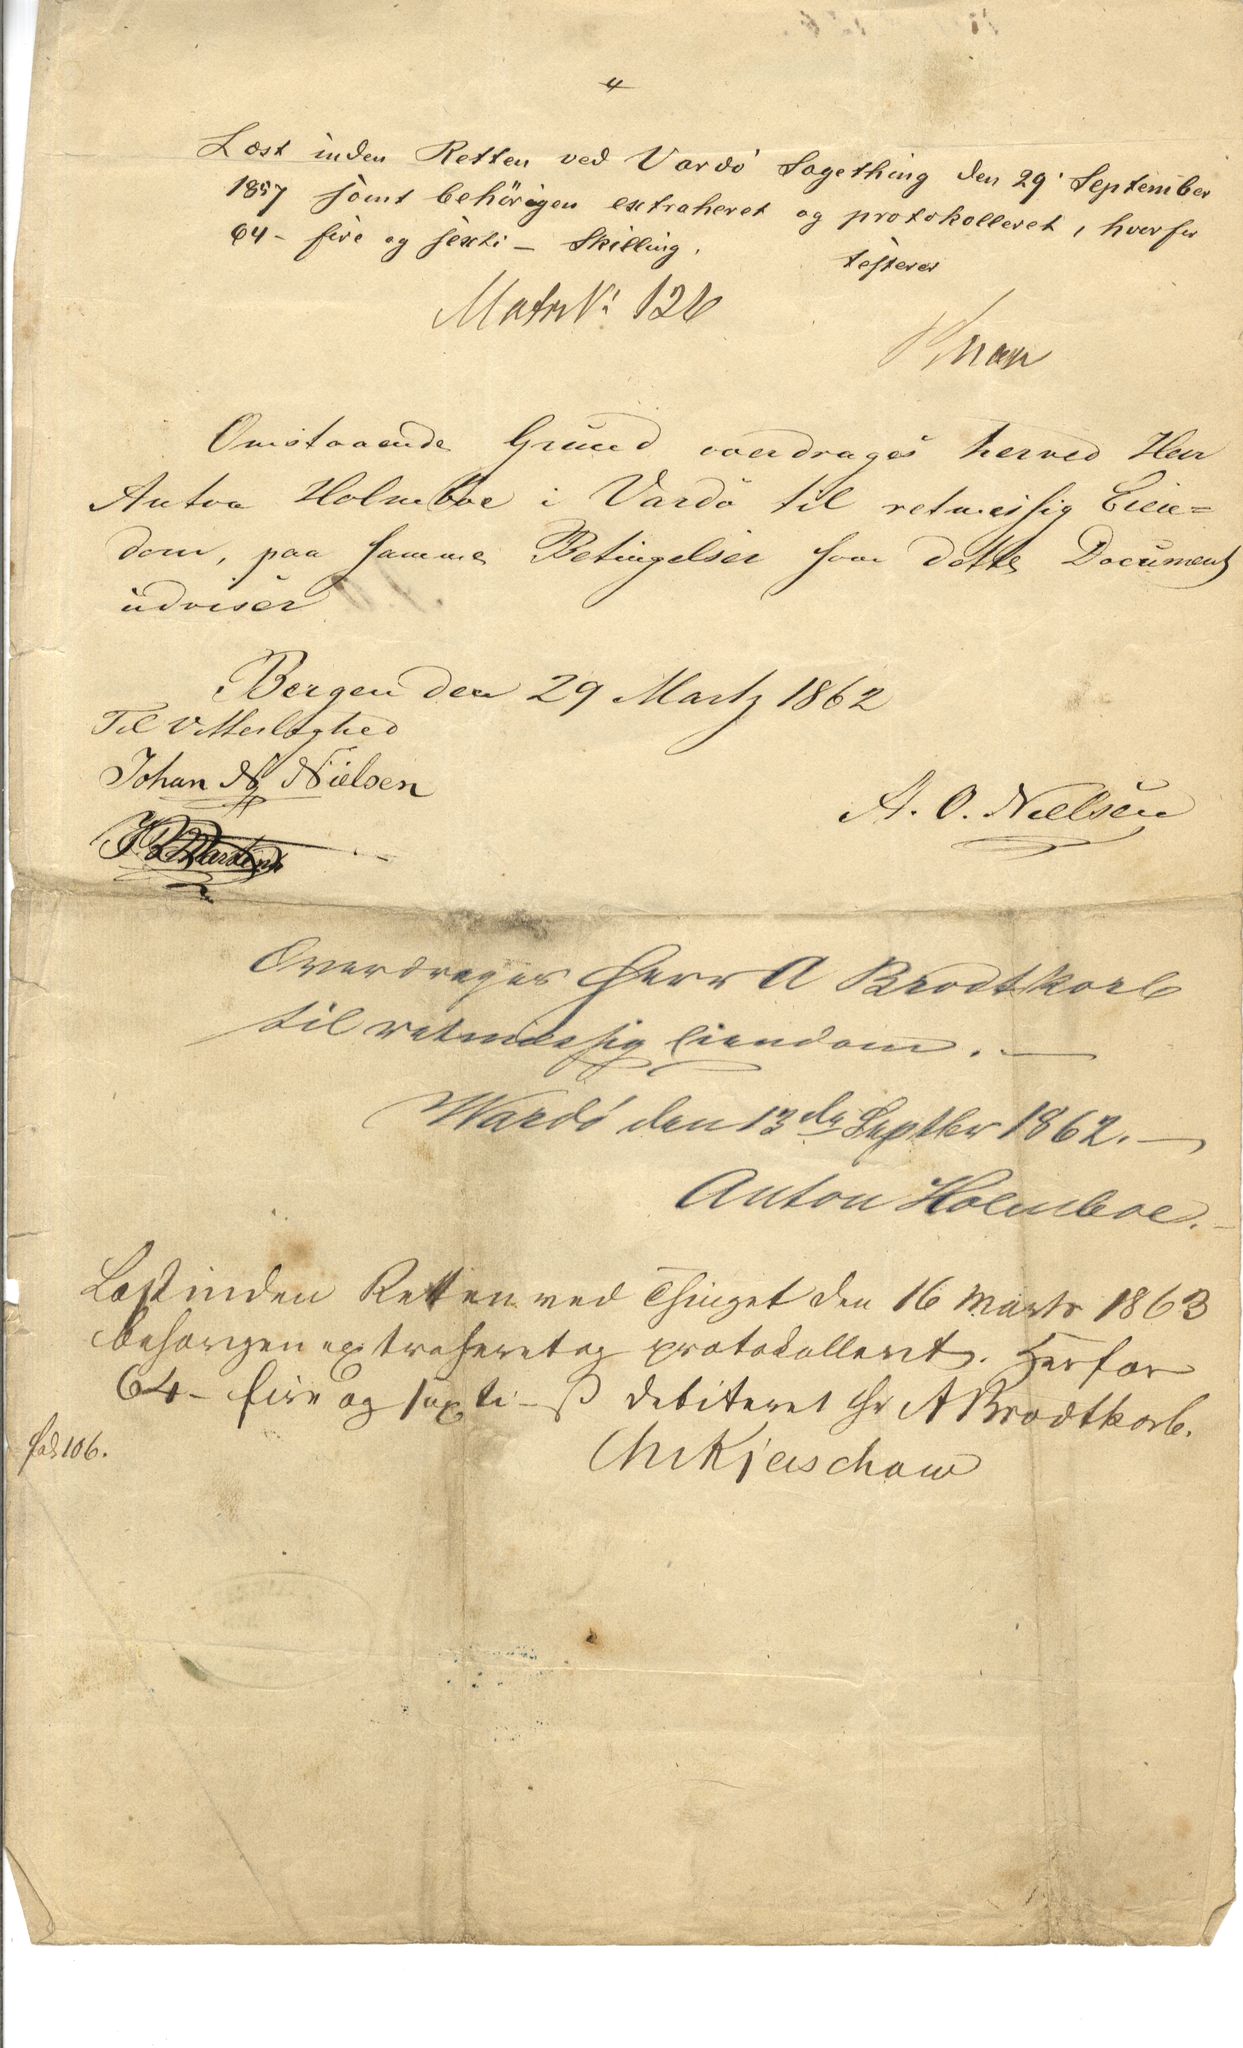 4
Læst inden Retten ved Vardö Sagething den 29' September
1857 samt behörigen extraheret og protokolleret, hvorfor
64 – fire og sexti – Skilling.
testerer
Matr N: 126
Omstaaende Grund overdrages herved Herr
Anton Holmboe i Vardö til retmæssig Eien=
dom, paa samme Betingelser som dette Document
udviser
Bergen den 29 Martz 1862
Til Vitterlighed
Johan N Nielsen
A. O. Nielsen
Overdrages Herr A Brodtkorb
til retmæssig Eiendom. —
Wardö den 13de Septbr 1862. —
Anton Holmboe. –
Læst inden Retten ved Thinget den 16 Marts 1863
behörigen extraheret og protokolleret. Herfor
64 – fire og sexti – ß debiteret Hr A Brodtkorb.
fol 106.
Kjerschow